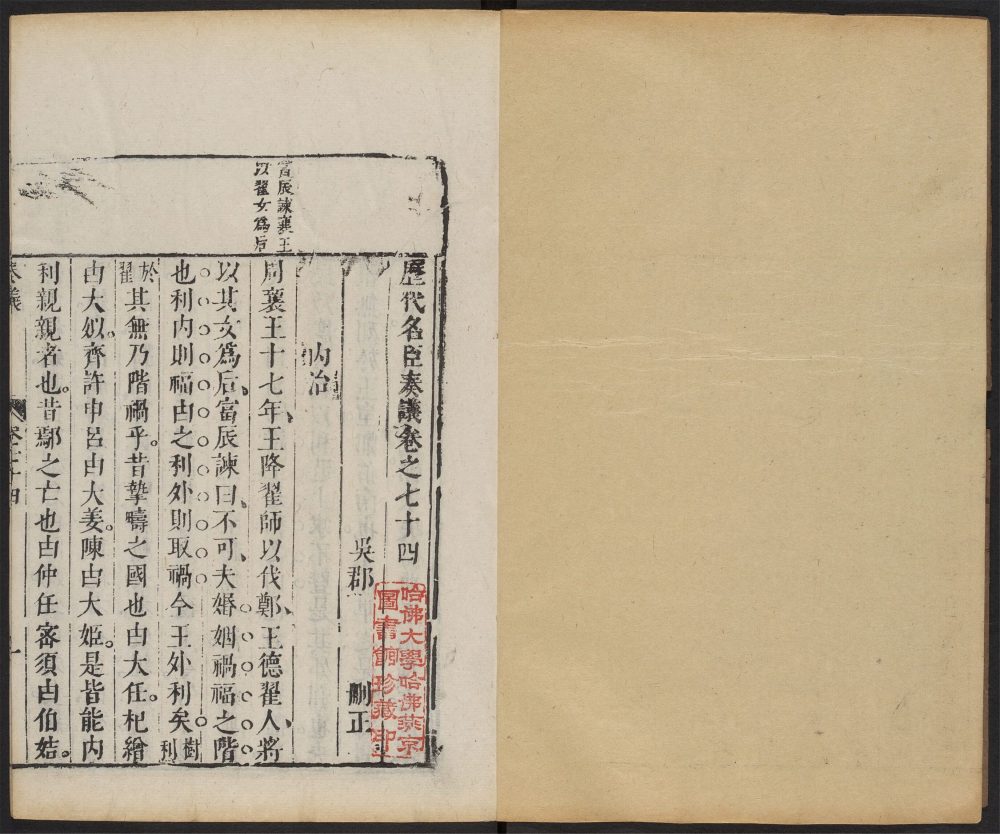 歷代名臣奏議卷之七十四
吳郡 刪正
內治
富辰諫襄王
以翟女爲后
周襄王十七年、王降翟師以伐鄭、王德翟人、將
以其女爲后、富辰諫曰、不可、夫婚姻禍福之階
也利內則福由之利外則取禍今王外利矣。樹利
於翟其無乃階禍乎。昔摯疇之國也由大任。杞繒
由大姒。齊許申呂由大姜。陳由大姬。是皆能內
利親親者也。昔鄢之亡也由仲任密須由伯姞。
奏議
卷之七十四
一
哈佛大學哈佛燕京
圖書館珍藏印